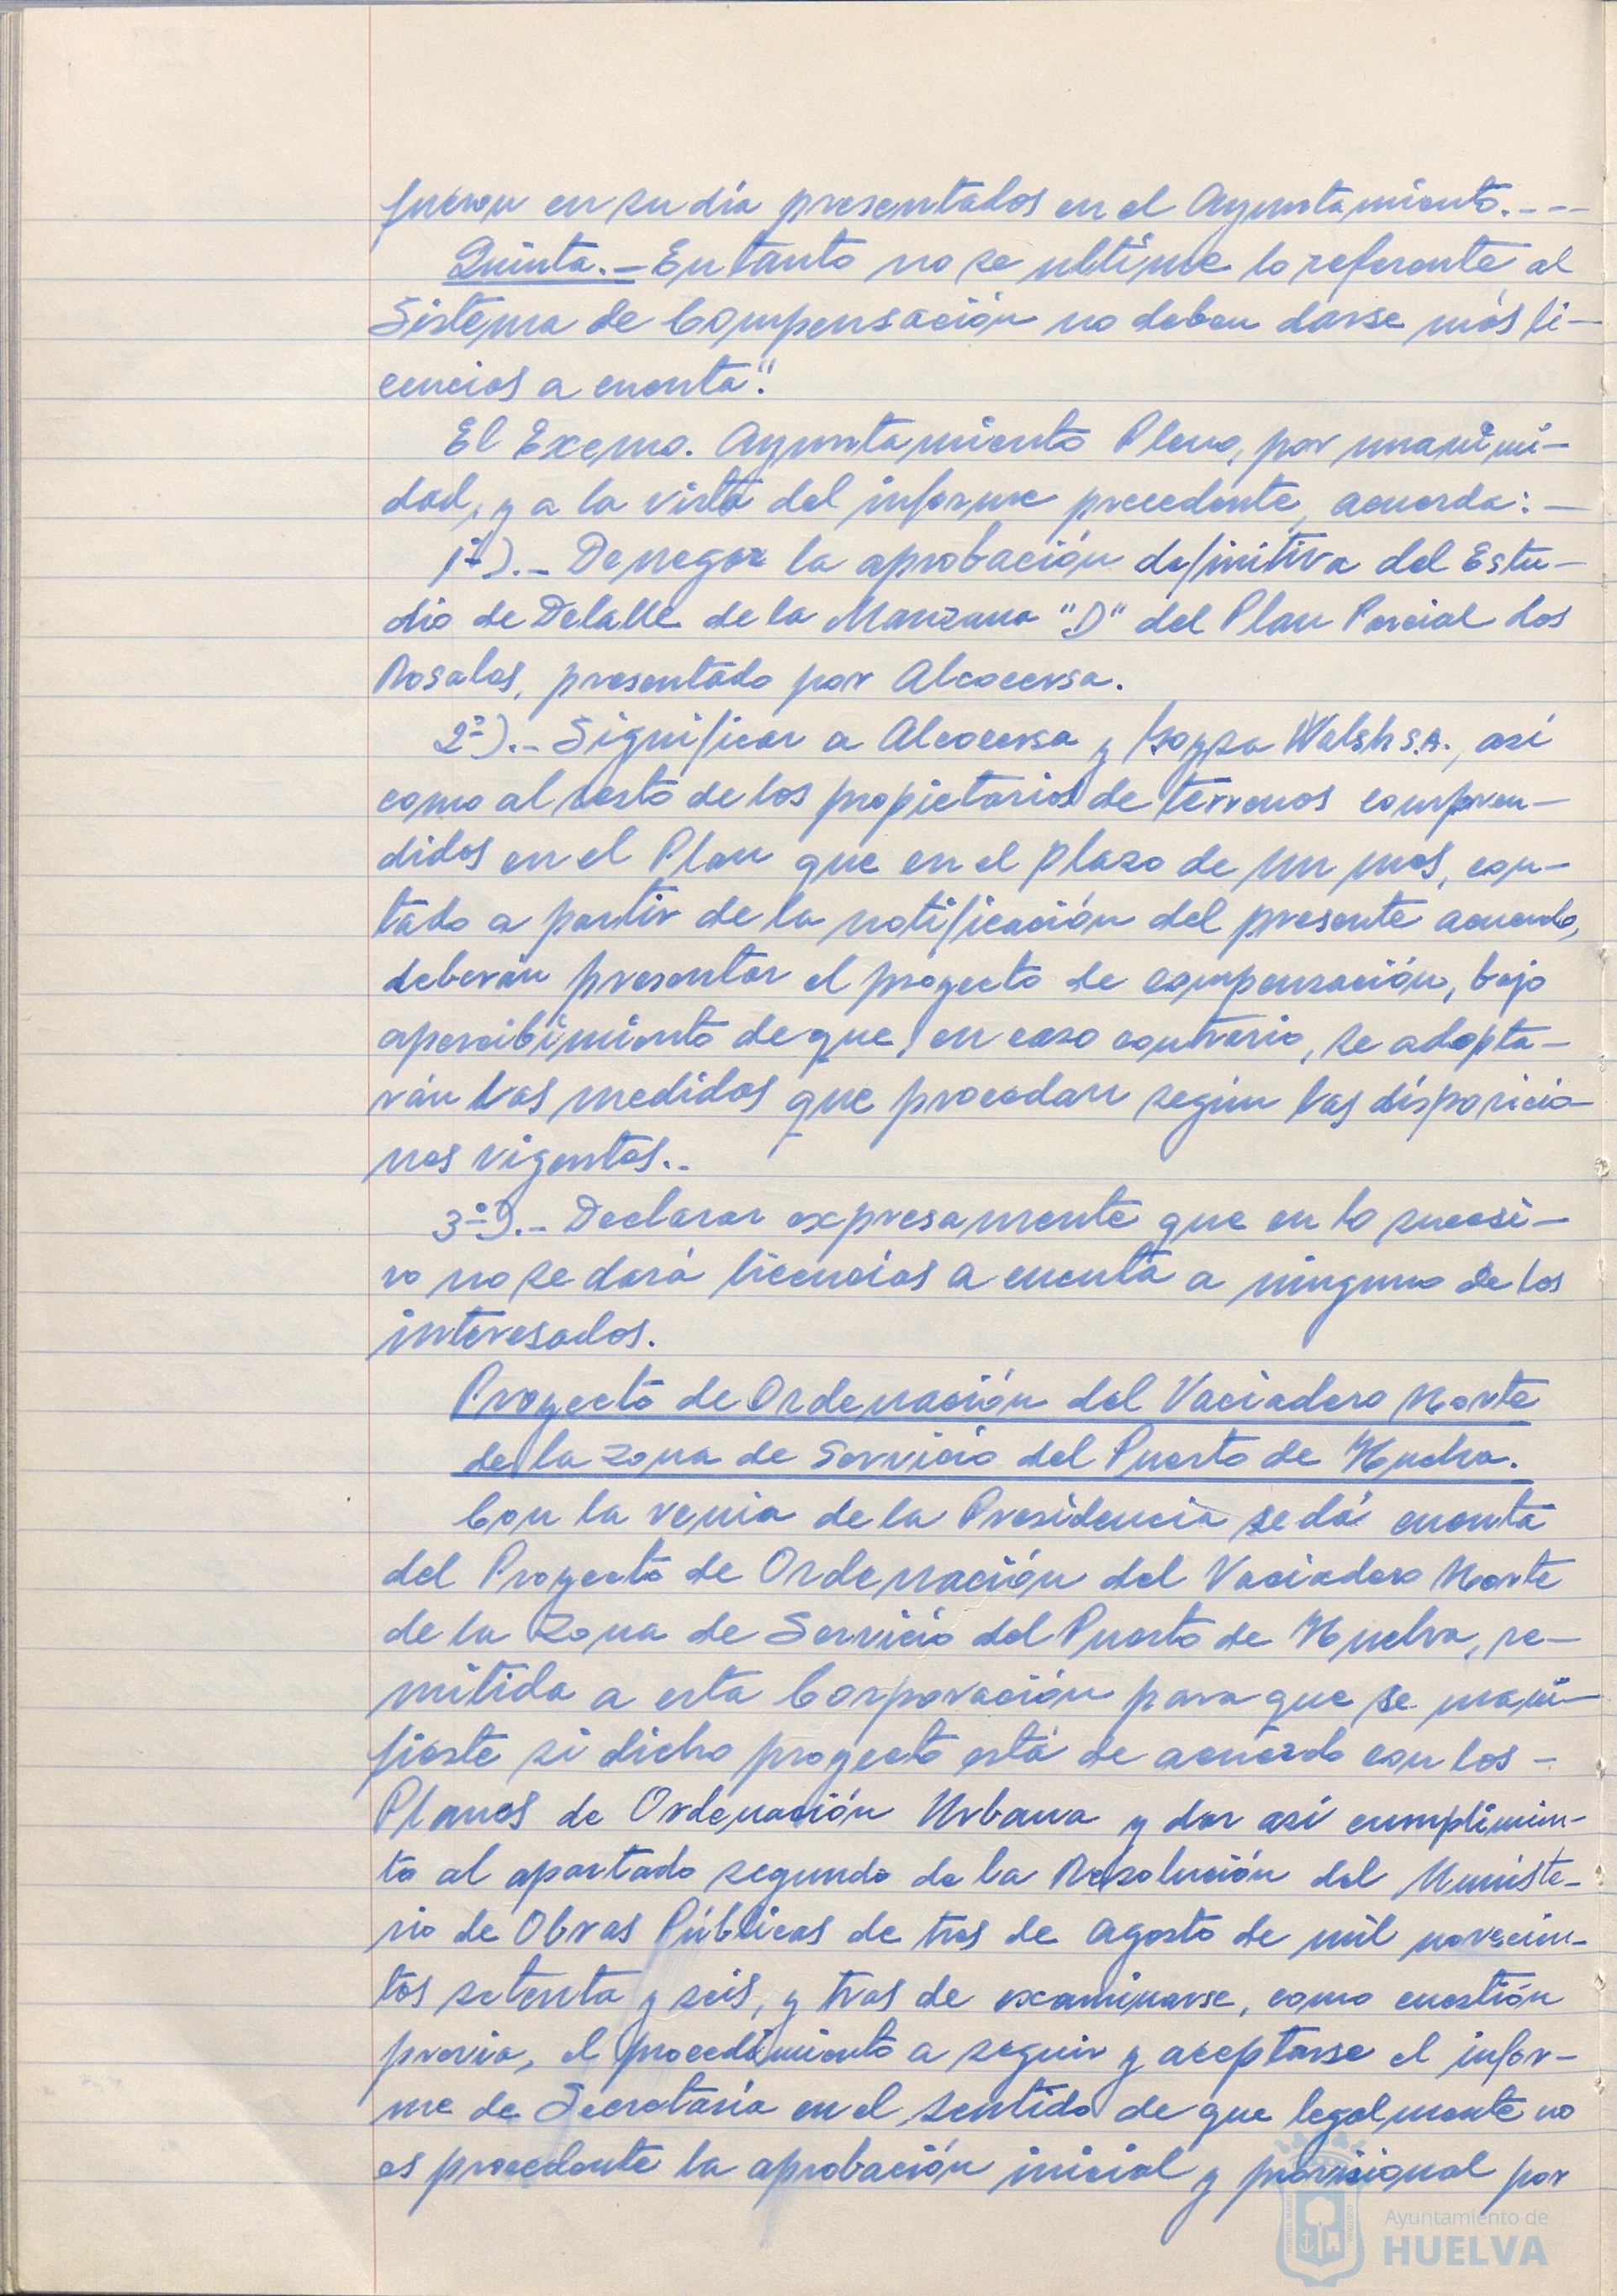 fueron en su día presentados en el Ayuntamiento.---
Quinta.- En tanto no se ultime lo referente al
Sistema de Compensación no deben darse más li-
cencias a cuenta".
El Excmo. Ayuntamiento Pleno, por unanimi-
dad, y a la vista del informe precedente, acuerda:-
1º).- Denegar la aprobación definitiva del Estu-
dio de Detalle de la Manzana "D" del Plan Parcial Los
Rosales, presentado por Alcocersa.
2º).- Significar a Alcocersa y Walsh S.A., así
como al resto de los propietarios de terrenos compren-
didos en el Plan que en el plazo de un mes, con-
tado a partir de la notificación del presente acuerdo,
deberán presentar el proyecto de compensación, bajo
apercibimiento de que, en caso contrario, se adopta-
rán las medidas que procedan según las disposicio-
nes vigentes..
3º).- Declarar expresamente que en lo sucesi-
vo no se dará licencias a cuenta a ninguno de los
interesados.
Proyecto de Ordenación del Vaciadero Norte
de la zona de Servicio del Puerto de Huelva.
Con la venia de la Presidencia se dá cuenta
del Proyecto de Ordenación del Vaciadero Norte
de la Zona de Servicio del Puerto de Huelva, re-
mitida a esta Corporación para que se mani-
fieste si dicho proyecto está de acuerdo con los -
Planes de Ordenación Urbana y dar así cumplimien-
to al apartado segundo de la Resolución del Ministe-
rio de Obras Públicas de tres de Agosto de mil novecien-
tos setenta y seis, y tras de examinarse, como cuestión
previa, el procedimiento a seguir y aceptarse el infor-
me de Secretaría en el sentido de que legalmente no
es procedente la aprobación inicial y provisional por
Ayuntamiento de
HUELVA